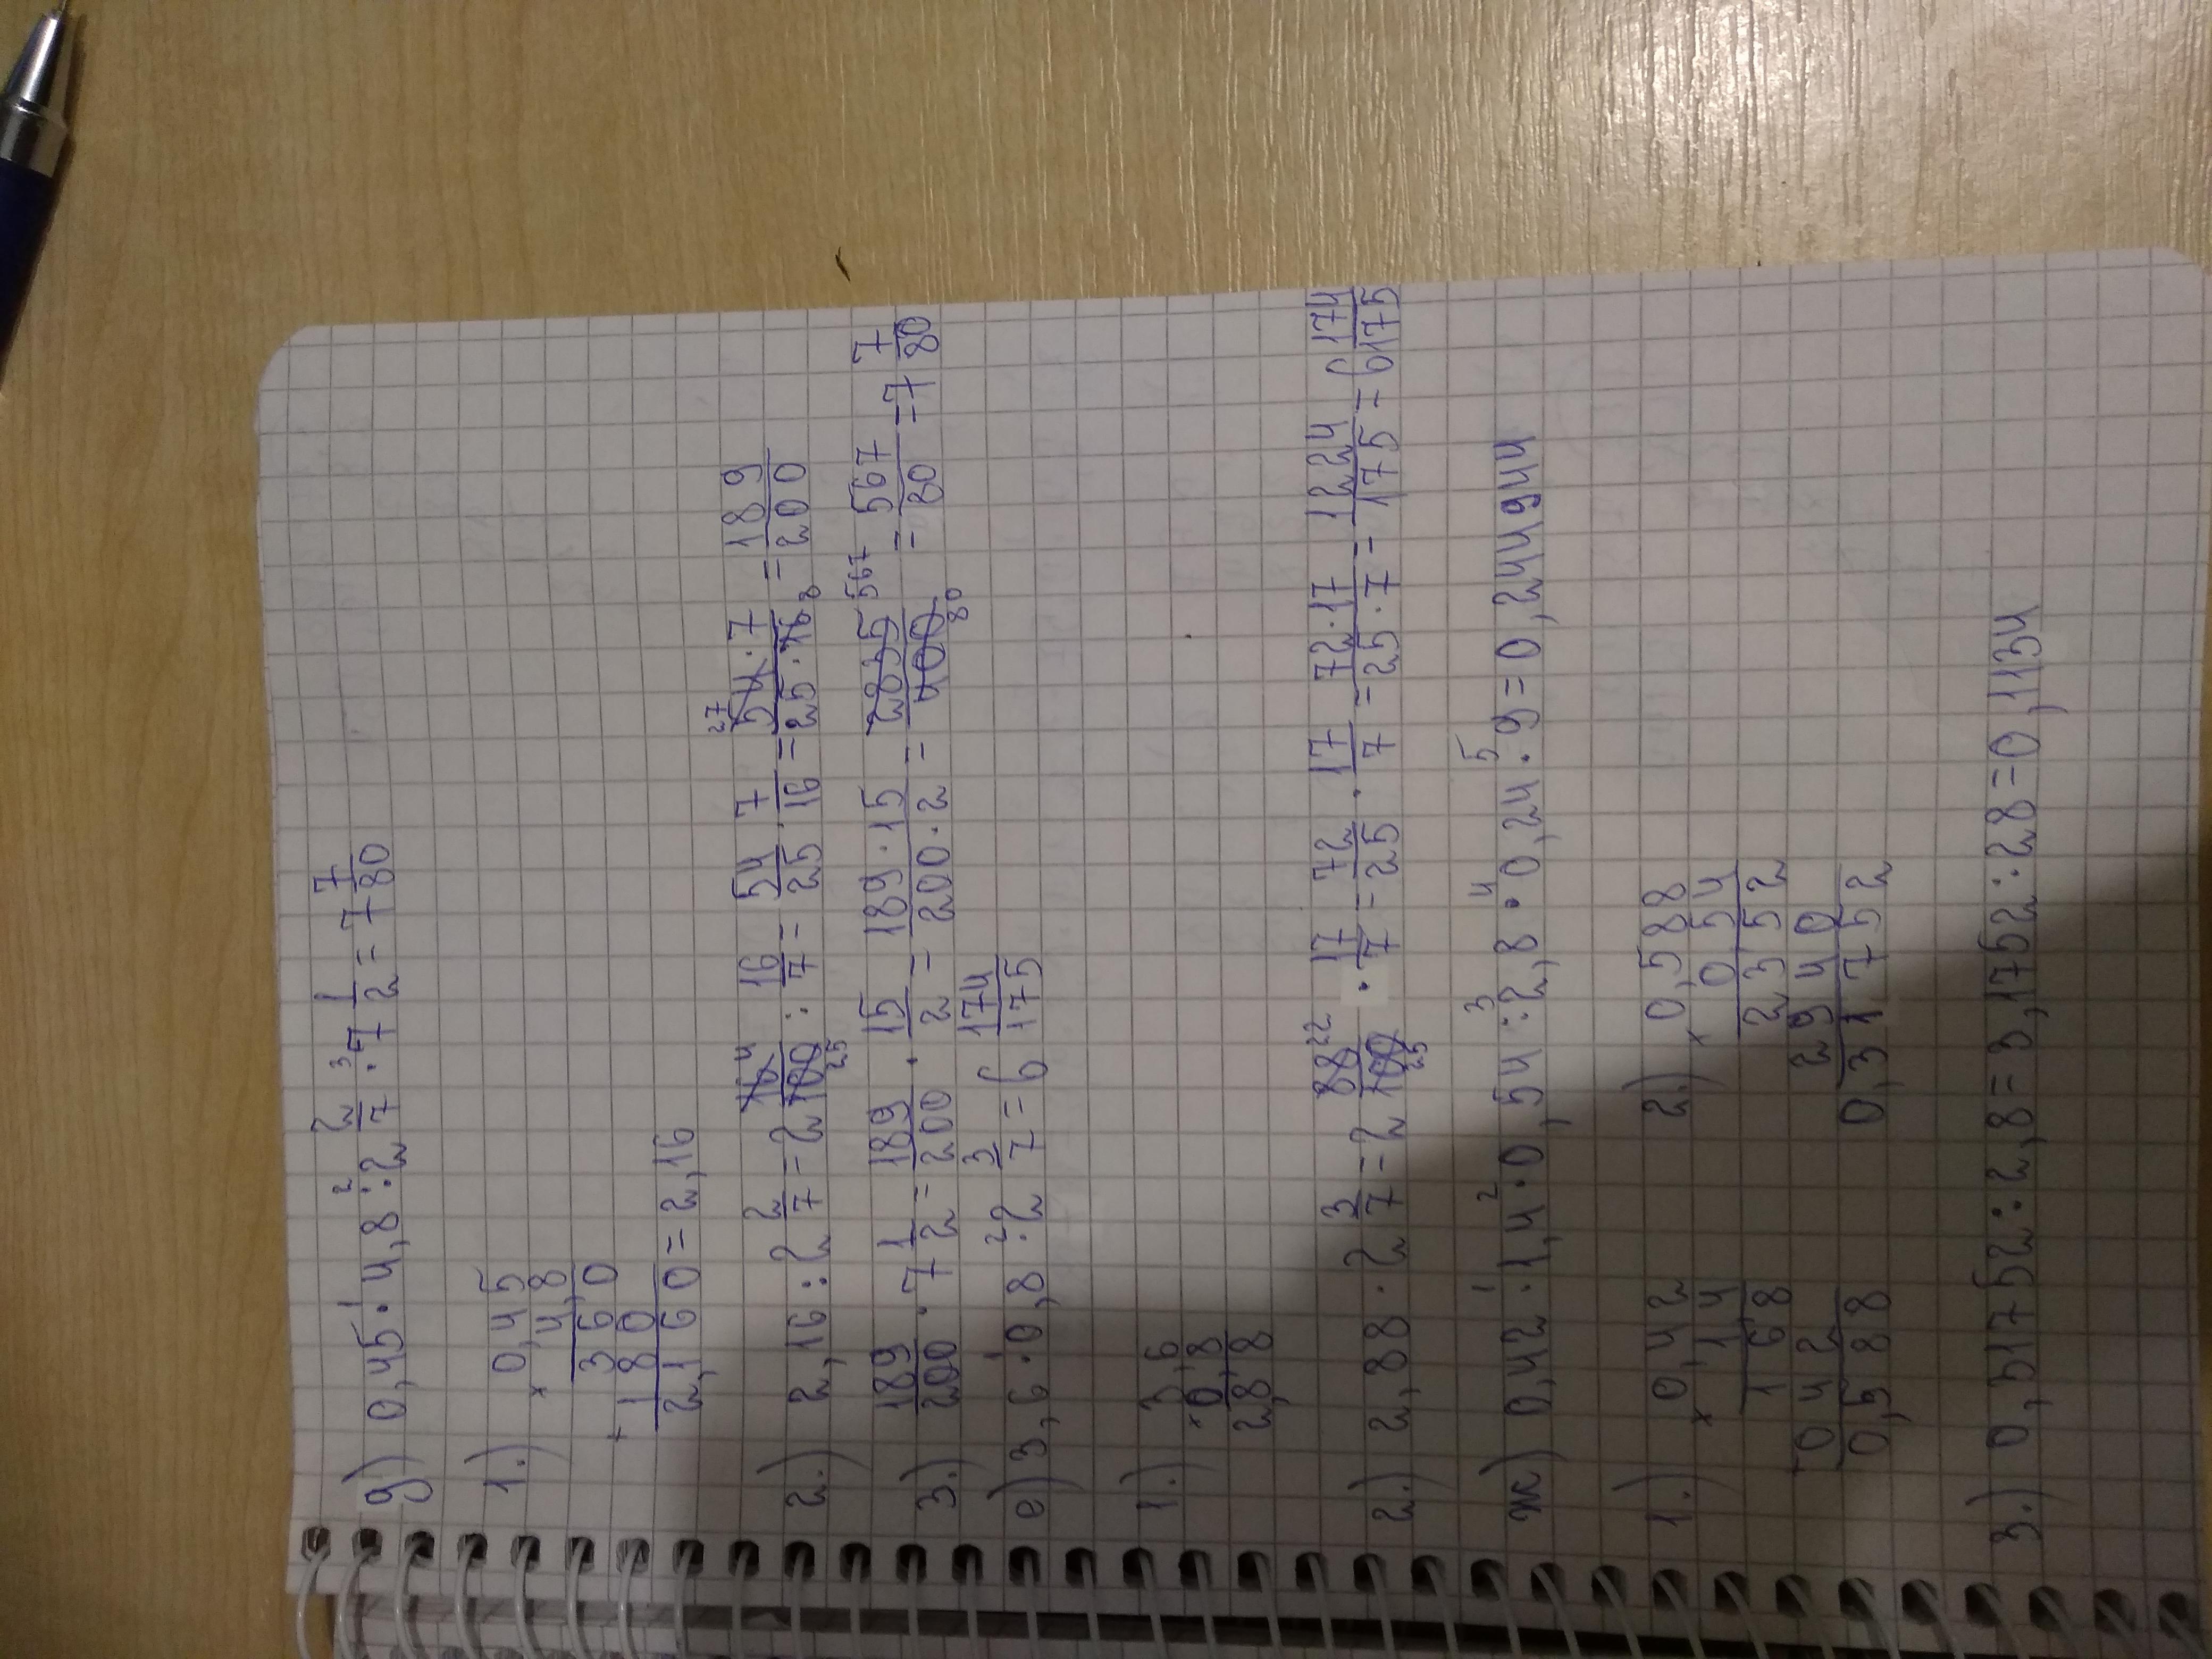 д) 0,45 ·¹ 4,8 :² 2 2/7 ·³ 7 1/2 = 7 7/80
1.) × 0,45
4,8
360
+ 180
2,160 = 2,16
2.) 2,16 : 2 2/7 = 2 16⁴/100₂₅ : 16/7 = 54/25 · 7/16 = ²⁷54·7/25·16₈ = 189/200
3.) 189/200 · 7 1/2 = 189/200 · 15/2 = 189·15/200·2 = 2835⁵⁶⁷/400₈₀ = 567/80 = 7 7/80
е) 3,6 ·¹ 0,8 :² 2 3/7 = 6 174/175
1.) × 3,6
0,8
28,8
2.) 2,88 · 2 3/7 = 2 88²²/100₂₅ · 17/7 = 72/25 · 17/7 = 72·17/25·7 = 1224/175 = 6 174/175
ж) 0,42 ·¹ 1,4 ·² 0,54 :³ 2,8 ·⁴ 0,24 ·⁵ 9 = 0,244944
1.) × 0,42
1,4
168
042
0,588
2.) × 0,588
0,54
2352
2940
0,31752
3.) 0,31752 : 2,8 = 3,1752 : 28 = 0,1134